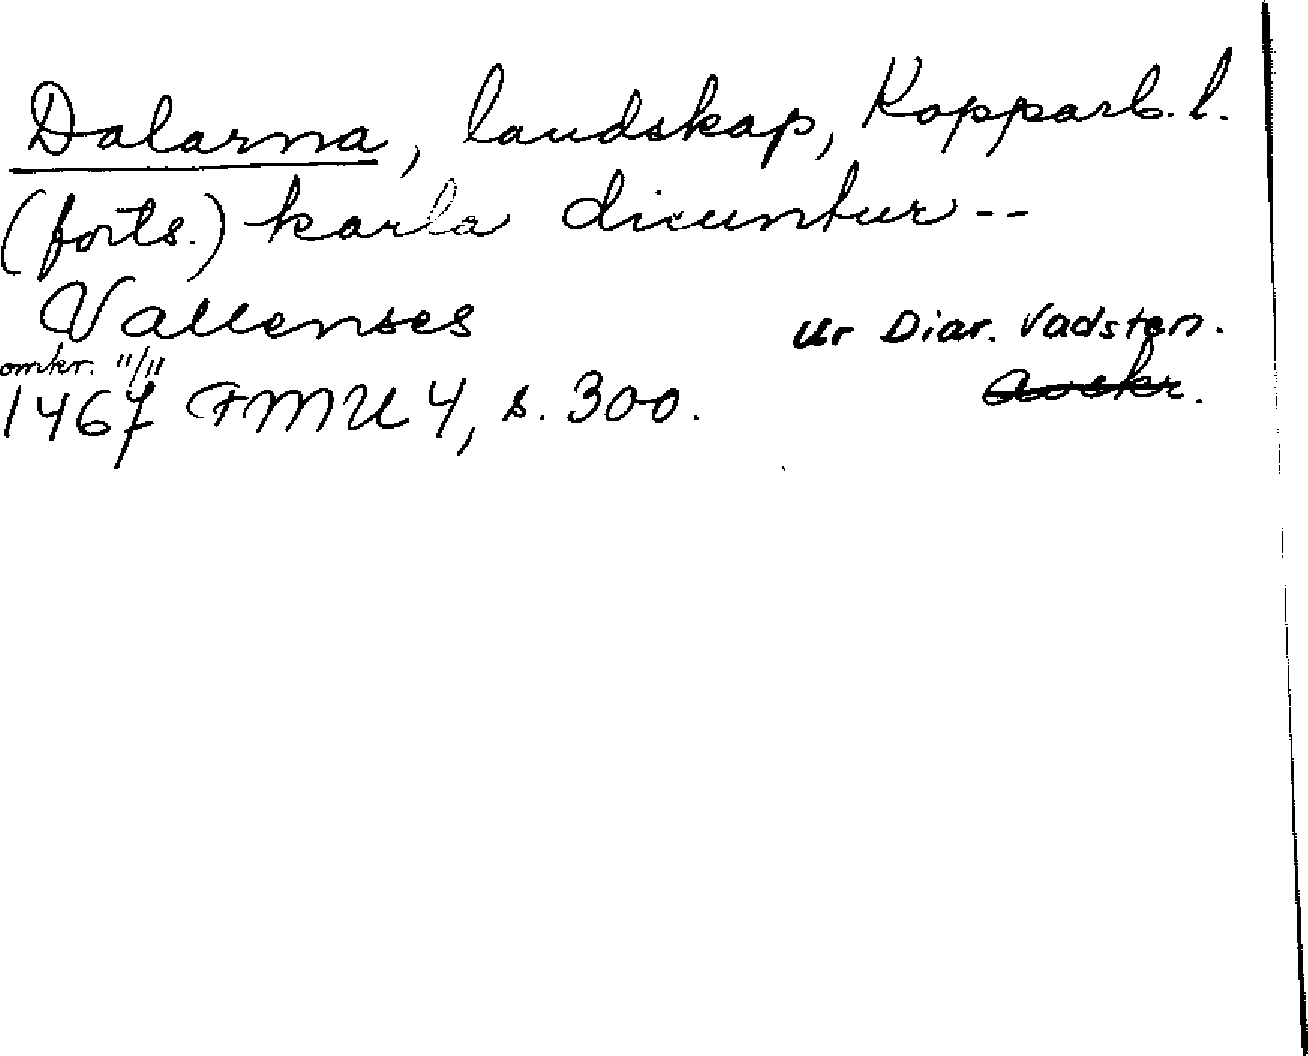 Dalarna, landskap, Kopparb. l.
(forts.) karla dicuntur --
Vallenses
ur Diar. Vadsten.
omkr. 11/11
1467 FMU 4, s. 300.